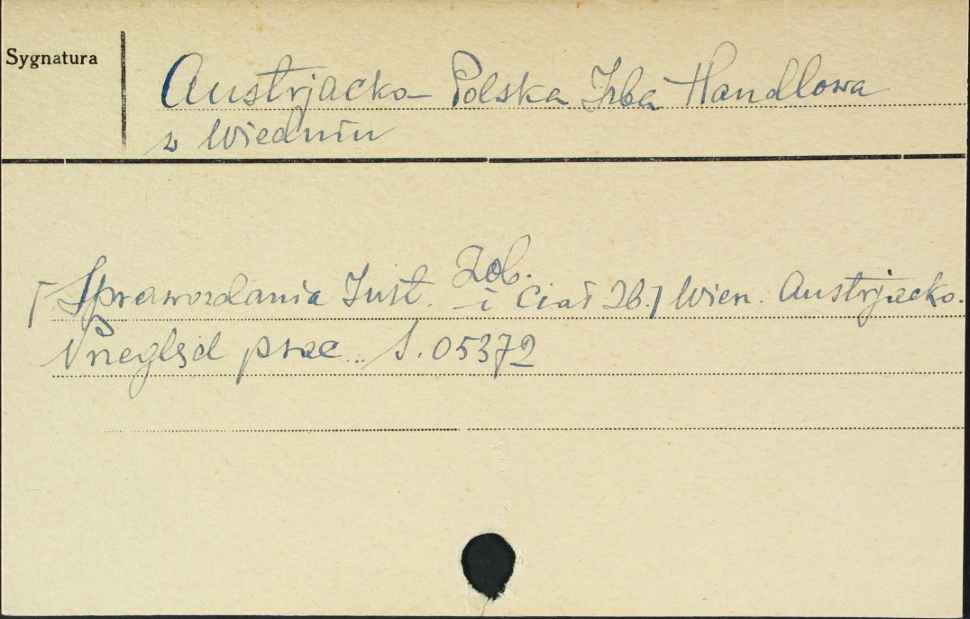 Sygnatura
Austrjacko-Polska Izba Handlowa
w Wiedniu
Zob.
[Sprawozdania Inst. i Ciał Zb.] Wien. Austrjacko.
Przegląd prac... S. 05372